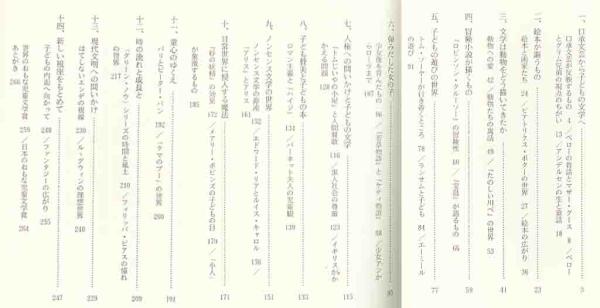 一、口承文芸から子どもの文学へ 3
口承文芸が反映するもの 4／ペローの昔話とマザー・グース 8／ペロー
とグリム兄弟の視点のちがい 13／アンデルセンの生と童話 18
二、絵本が謳うもの 23
絵本と画家たち 24／ビアトリクス・ポターの世界 27／絵本の広がり 36
三、文学は動物をどう描いてきたか 41
動物への愛 42／動物たちの寓話 49／『たのしい川べ』の世界 53
四、冒険小説が描くもの 59
『ロビンソン・クルーソー』の冒険性 60／『宝島』が語るもの 66
五、子どもの遊び 77
トム・ソーヤーが行きあうところ 78／ランサムと子ども 84／エーミール
の遊び 91
六、
少女像を 96／『若草物語』と『ケティ物語』 ／少女アンか
らローラまで 107
七、人権への問いかけと子どもの文学 115
『アンクル・トムの小屋』と人間賛歌 116／黒人社会の尊厳 123／イギリスがか
かえる問題 128
八、子ども賛美と子どもの本 131
ロマン主義と『ハイジ』 131／バーネット夫人の児童観 139
九、ノンセンス文学の世界 151
ノンセンス文学の鉱産 152／エドワード・リアとルイス・キャロル 156／
『アリス』とアリス 161
十、日常世界に侵入する魔法 171
『砂の妖精』の効果 172／メアリー・ポピンズの子どもの日 179／「小人」
が象徴するもの 185
十一、童心のゆくえ 191
バリとピーター・パン 192／『クマのプー』の世界 200
十二、時の流れと成長と 209
『グリーン・ノウ』シリーズの時間と風土 210／フィリッパ・ピアスの憧れ
の世界 217
十三、現代文明への問いかけ 229
はてしないエンデの視線 230／ル＝グウィンの理想世界 240
十四、新しい視座をもとめて 247
子どもの内面へ向かって 248／ファンタジーの広がり 255
世界のおもな児童文学賞 259／日本のおもな児童文学賞 264
あとがき 266